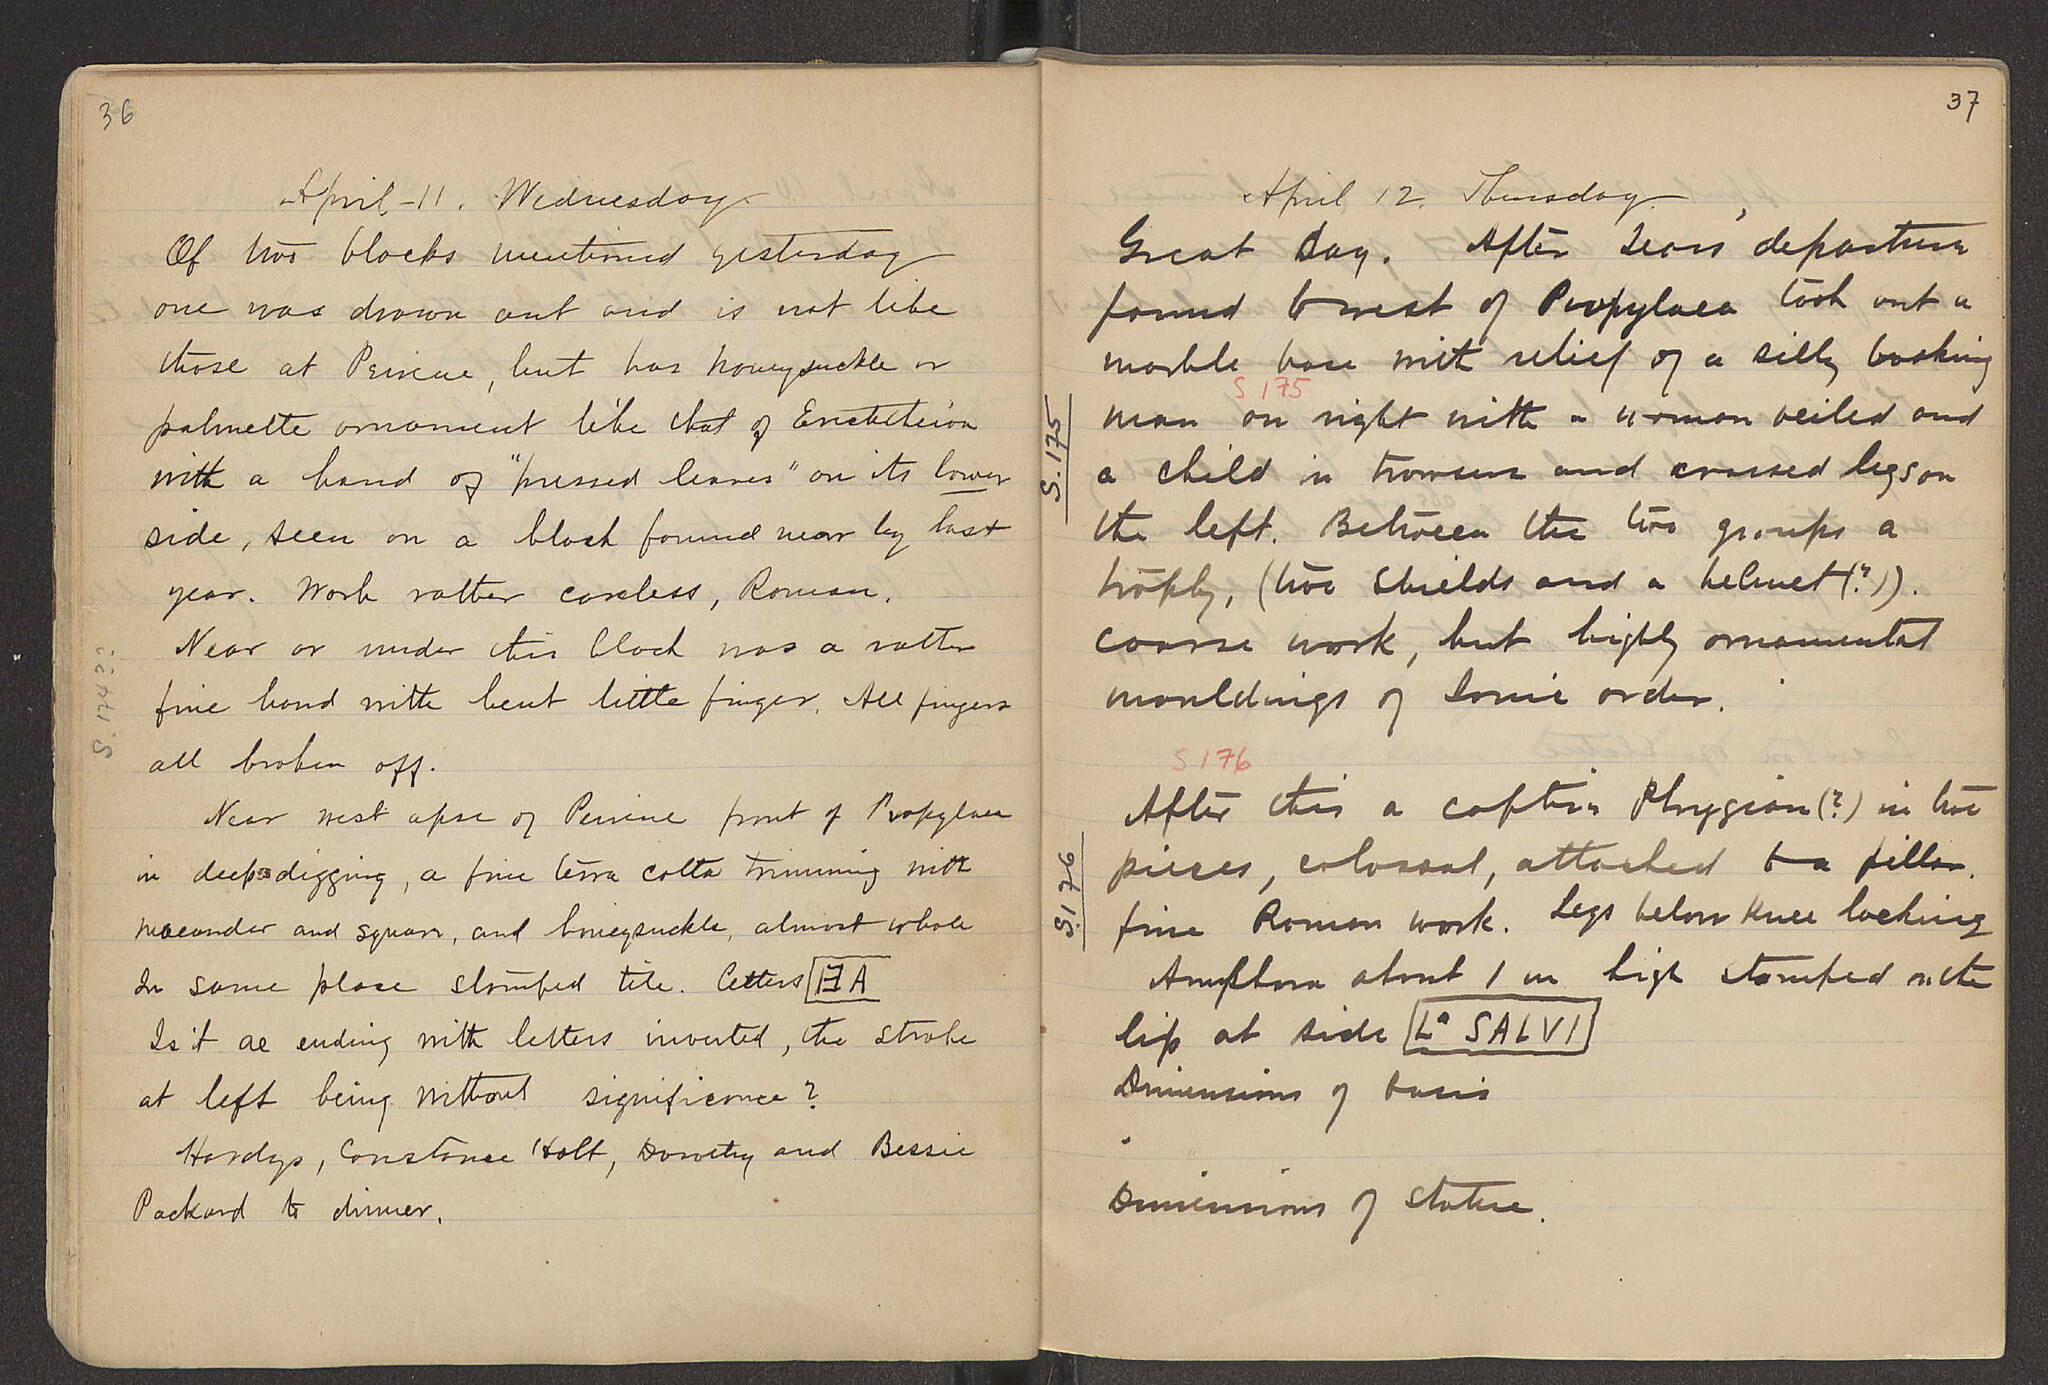 36
April 11. Wednesday
Of two blocks mentioned yesterday
one was drawn out and is not like
those at Peirene, but has honeysuckle or
palmette ornament like that of Erechtheion
with a band of "pressed leaves" on its lower
side, seen on a block found near by last
year. Work rather careless, Roman.
Near or under this block was a rather
fine hand with bent little finger. All fingers
all broken off.
Near west apse of Peirene front of Propylaea
in deep digging, a fine terra cotta trimming with
maeander and square, and honeysuckle, almost whole
In same place stamped tile. Letters
Is it ae ending with letters inverted, the stroke
at left being without significance?
Hardys, Constance Holt, Dorothy and Bessie
Packard to dinner.
37
April 12. Thursday
Great Day. After departure
found to west of Propylaea took out a
marble base with relief of a silly looking
S 175
man on right with a woman veiled and
S. 175
a child in trowsers and crossed legs on
the left. Between the two groups a
trophy, (two shields and a helmet (?)).
coarse work, but highly ornamental
mouldings of Ionic order.
S 176
After this a captive Phrygian (?) in two
pieces, colossal, attached to a pillar.
S. 176
fine Roman work. Legs below knee lacking
Amphora about 1 m high stamped on the
lip at side La SALVI
Dimensions of basis
Dimensions of statue.